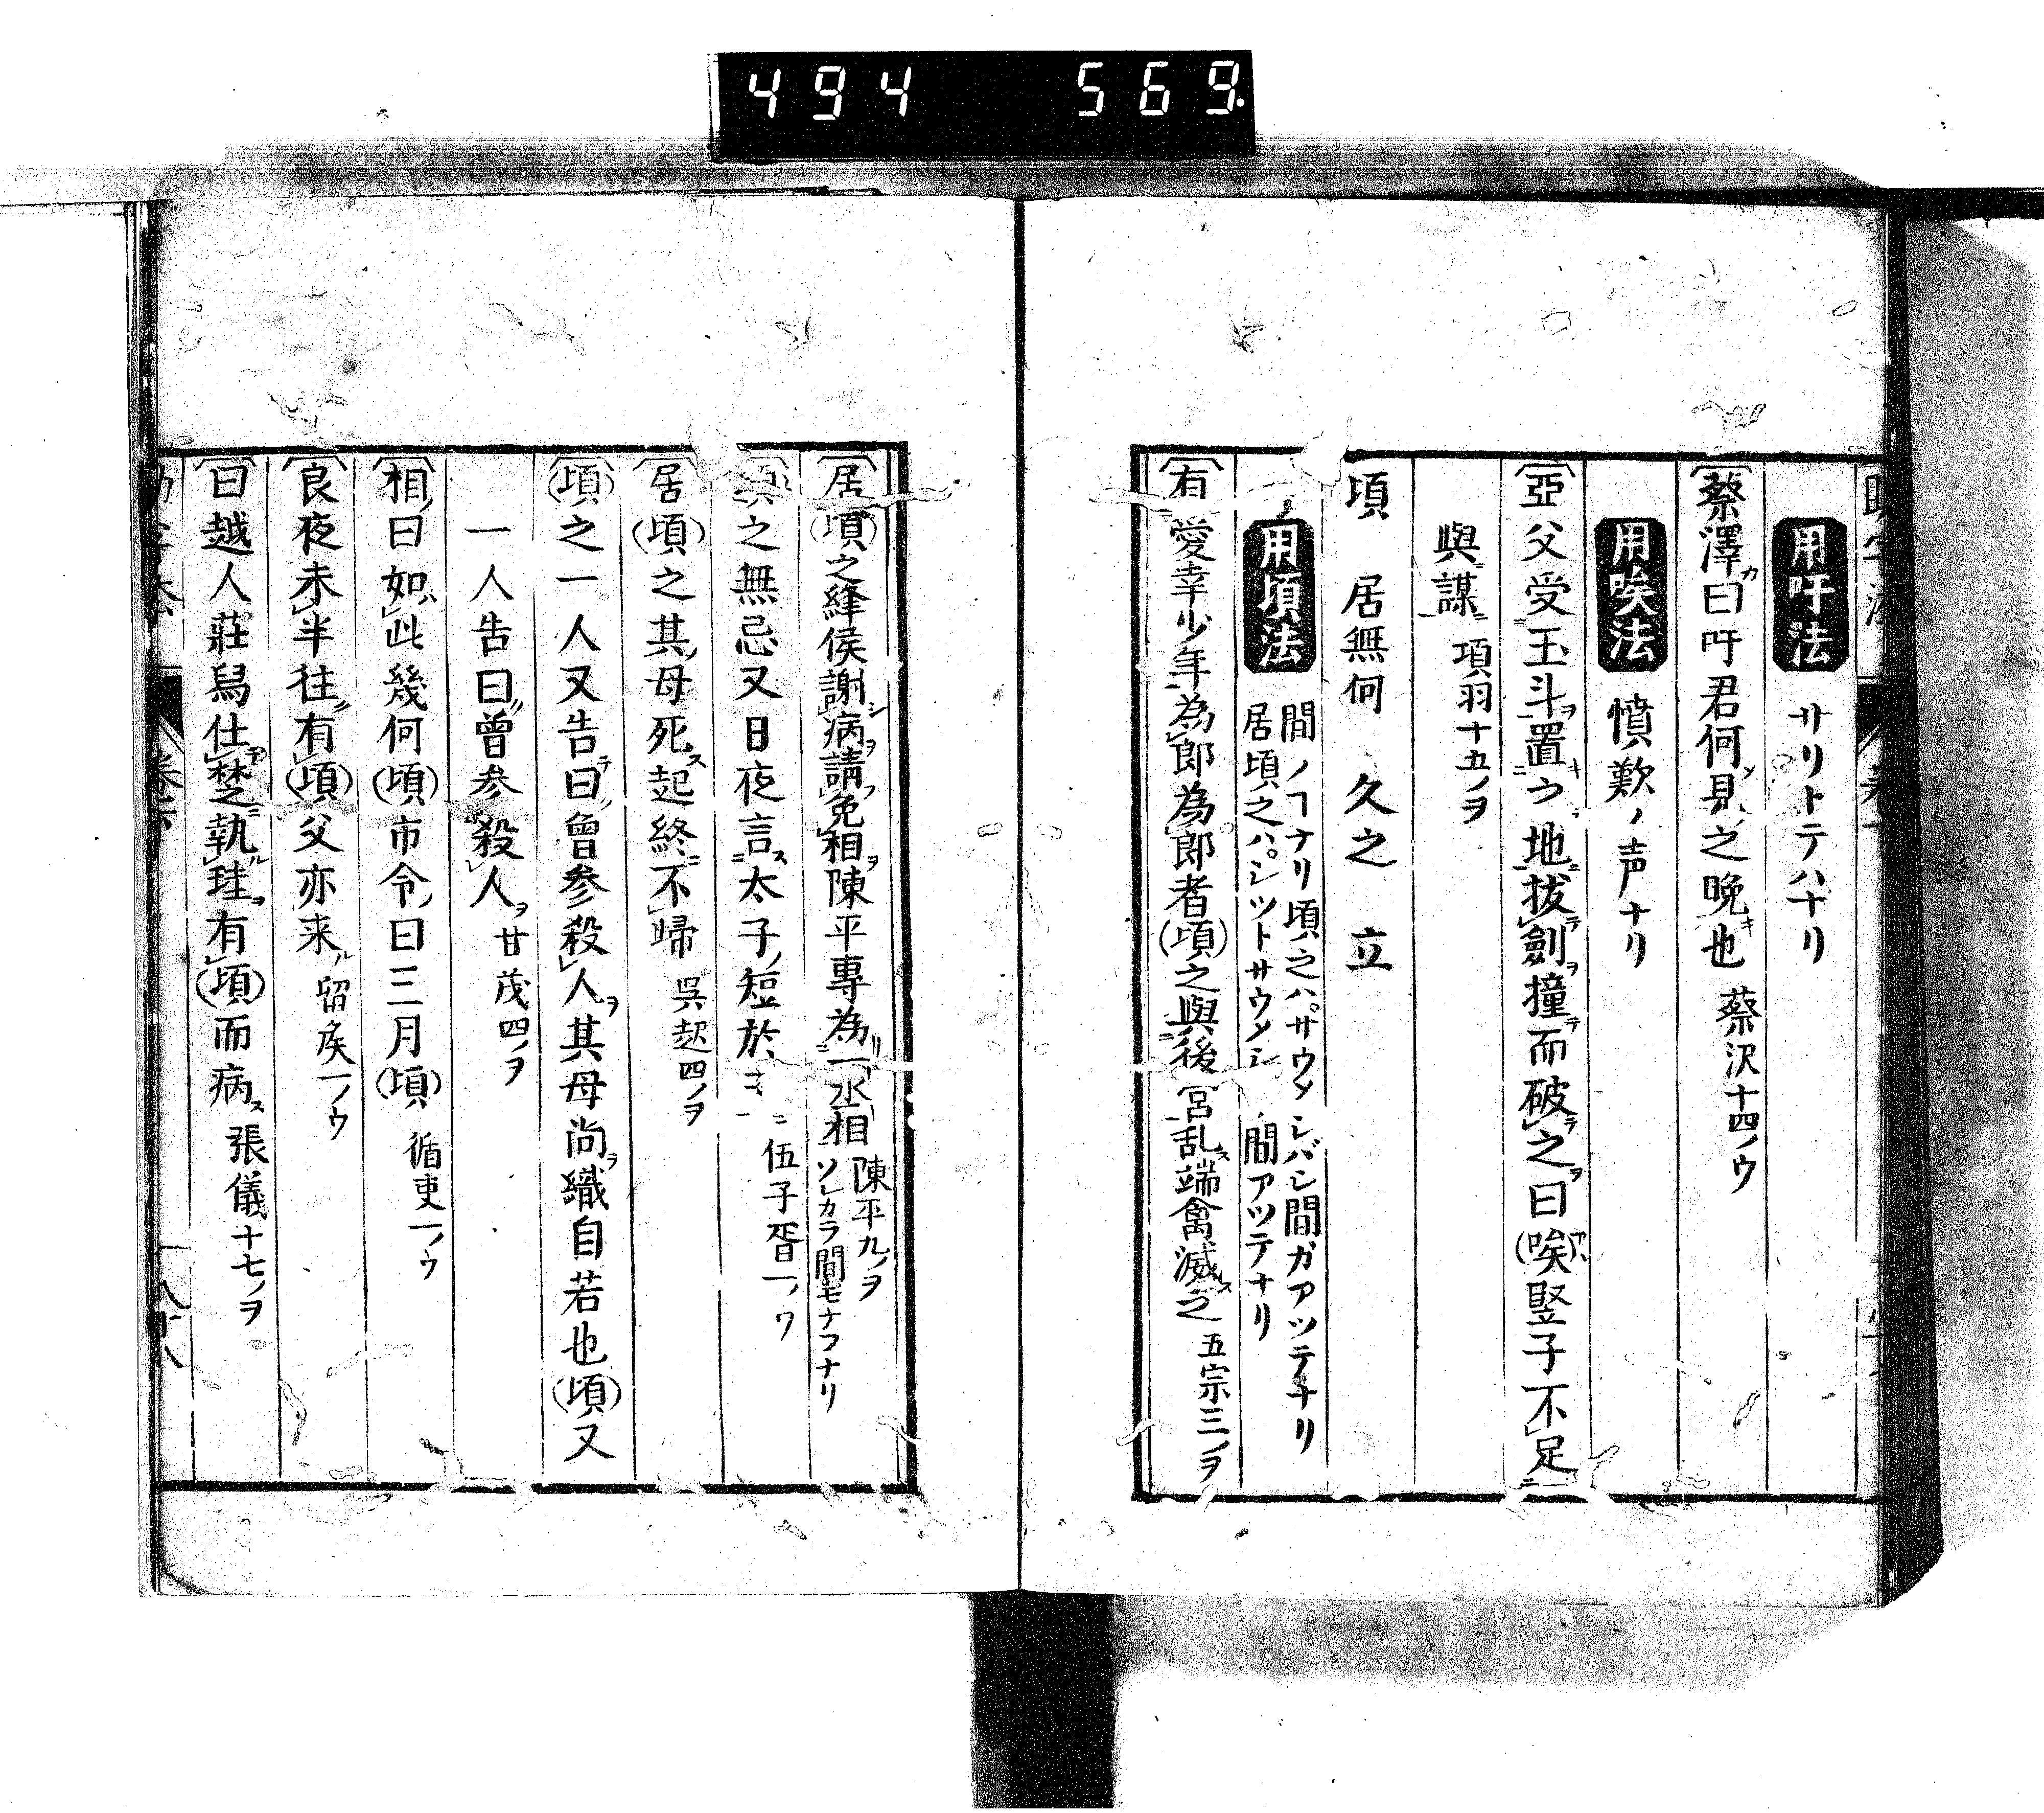 494 569
用吁法 サリトテハナリ
蔡澤曰吁君何見之晩也 蔡沢十四ノウ
用唉法 憤歎ノ声ナリ
亞父受玉斗置之地拔劍撞而破之曰(唉)竪子不足
與謀 項羽十五ノヲ
頃 居無何 久之 立
用頃法 間ノ⼀ナリ頃之ハサウタシバシ間ガアツテナリ
居頃之ハシツトサウタシ間アツテナリ
有愛幸少年為郎為郎者(頃)之與後宮乱端禽滅之 五宗三ノヲ
居(頃)之絳侯謝病請免相陳平専為一丞相 陳平九ノヲ
ソレカラ間モナフナリ
之無忌又日夜言太子短於 伍子胥一ノウ
居(頃)之其母死起終不歸 呉起四ノヲ
(頃)之一人又告曰曾参殺人其母尚織自若也(頃)又
一人告曰曾参殺人 甘茂四ノヲ
相曰如此幾何(頃)市令曰三月(頃) 循吏一ノウ
良夜未半往有(頃)父亦来 留矦一ノウ
曰越人莊舄仕楚執珪有(頃)而病 張儀十七ノヲ